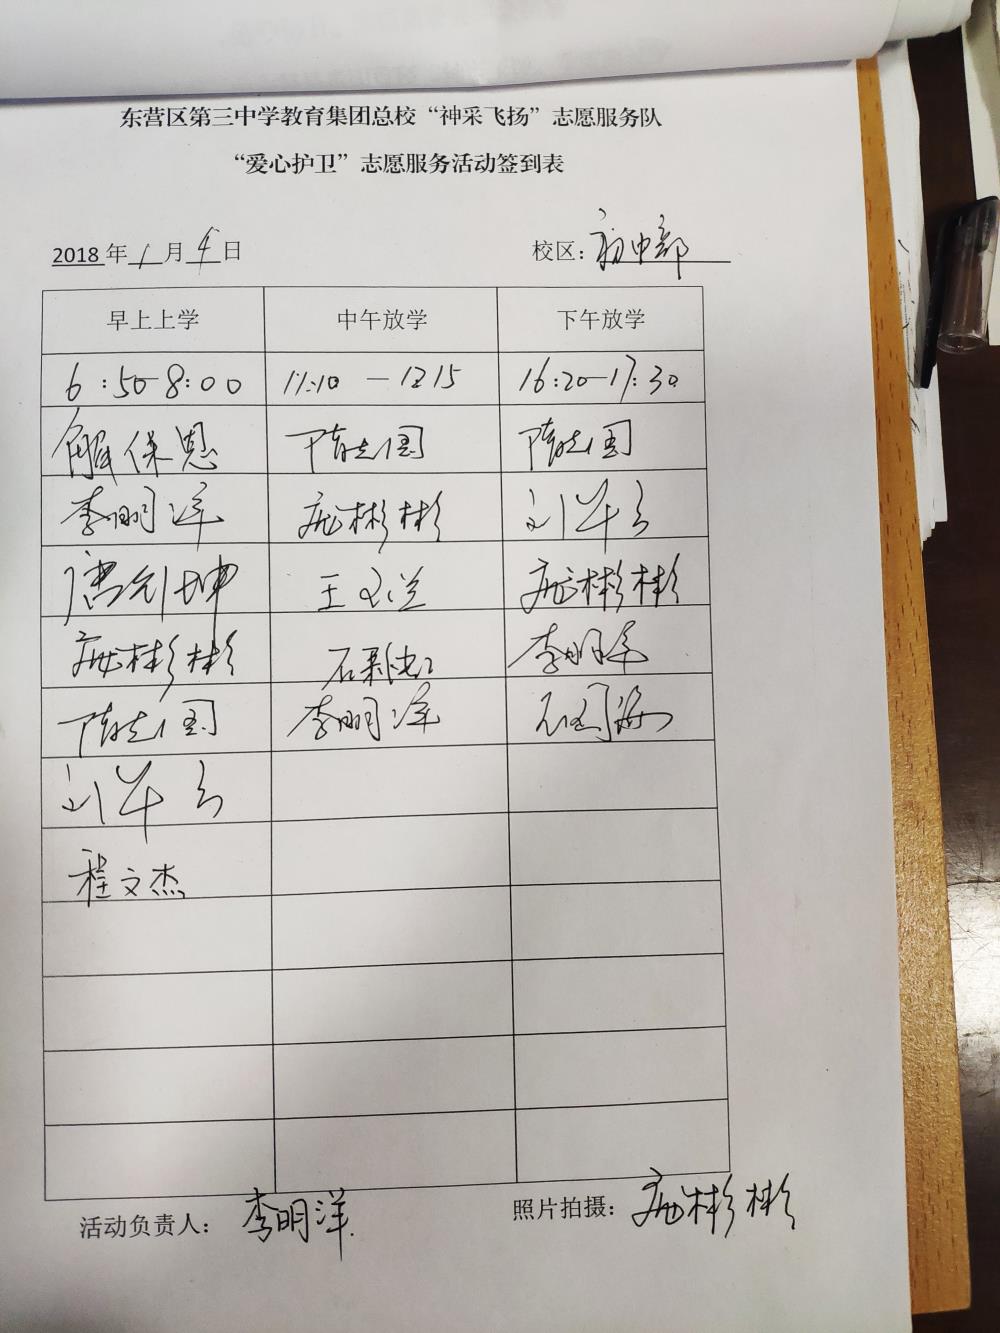 东营区第三中学教育集团总校“神采飞扬”志愿服务队
“爱心护卫”志愿服务活动签到表
2018年1月4日 校区：初中部
早上上学 中午放学 下午放学
6:50-8:00 11:10-1215 16:20-17:30
解保恩 隋志国 隋志国
李明洋 庞彬彬 刘军
唐剑坤 王文兰 庞彬彬
庞彬彬 石 李明洋
隋志国 李明洋 石国海
刘军
程文杰
活动负责人：李明洋 照片拍摄：庞彬彬